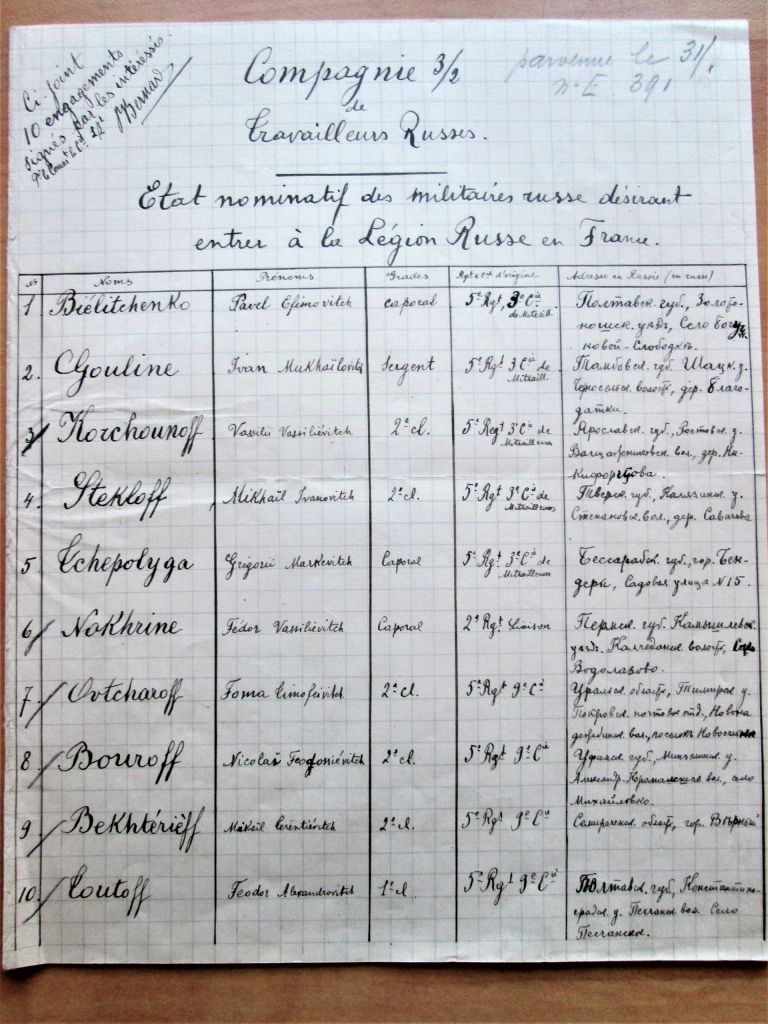 Ci joint
10 engagements
signés par les intéréssés.
Bernard
Compagnie 3/2
parvenue le 31/1
n° E. 391
de
Travailleurs Russes.
Etat nominatif des militaires russe désirant
entrer à la Légion Russe en France.
N° Noms Prénoms Grades Rgt et Cie d'origine Adresse en Russie (en russe)
1 Biélitchenko Pavel Efimovitch caporal 5e Rgt, 3e Cie de Mitraill. Полтавск. губ., Золото-
ношск. уѣзд,, Село Богу
новой-Слободкѣ.
2. Gouline Ivan Mukhaïlovitz Sergent 5e Rgt. 3 Cie de Mitraill. Тамбовск. губ. Шацк. у.
волость, дер. Благо-
датки.
3 Korchounoff Vassilii Vassiliévitch 2e cl. 5e Regt 3e Cie de Mitrailleurs Ярославск. губ., Ростовск. у.
вол., дер. Ни-
кифорцова.
4. Stekloff Mikhaïl Ivanovitch 2e cl. 5e Rgt 3e Cie de Mitrailleurs Тверск. губ., Калязинск. у.
Степановск. вол., дер. Савичева
5 Tchepolyga Grigorii Markevitch Caporal 5e Rgt 3e Cie de Mitrailleurs Бессарабск. губ., гор. Бен-
дери, Садовая улица N 15.
6 Nokhrine Fédor Vassiliévitch Caporal 2e Rgt. Liaison Пермск. губ. Камышловск.
уѣзд. Колчеданск. волость, Село
Водолазово.
7. Ovtcharoff Foma Timofeivitch 2e cl. 5e Rgt 9e Cie Уральск. область, у.
Покровск. почтовое отд.,
вол.,
8 Bouroff Nicolaï Feodossiévitch 2e cl. 5e Rgt 9e Cie Уфимск. губ., у.
Александр. вол., село
Михайловко.
9 Bekhtérieff Mikaïl Téréntiévitch 2e cl. 5e Rgt 9e Cie Семиреченск. область, гор. Вѣрный
10. Toutoff Feodor Alexandrovitch 1e cl. 5e Rgt 9e Cie Полтавск. губ., Константино-
градск. у. Песчанск. вол. Село
Песчанское.